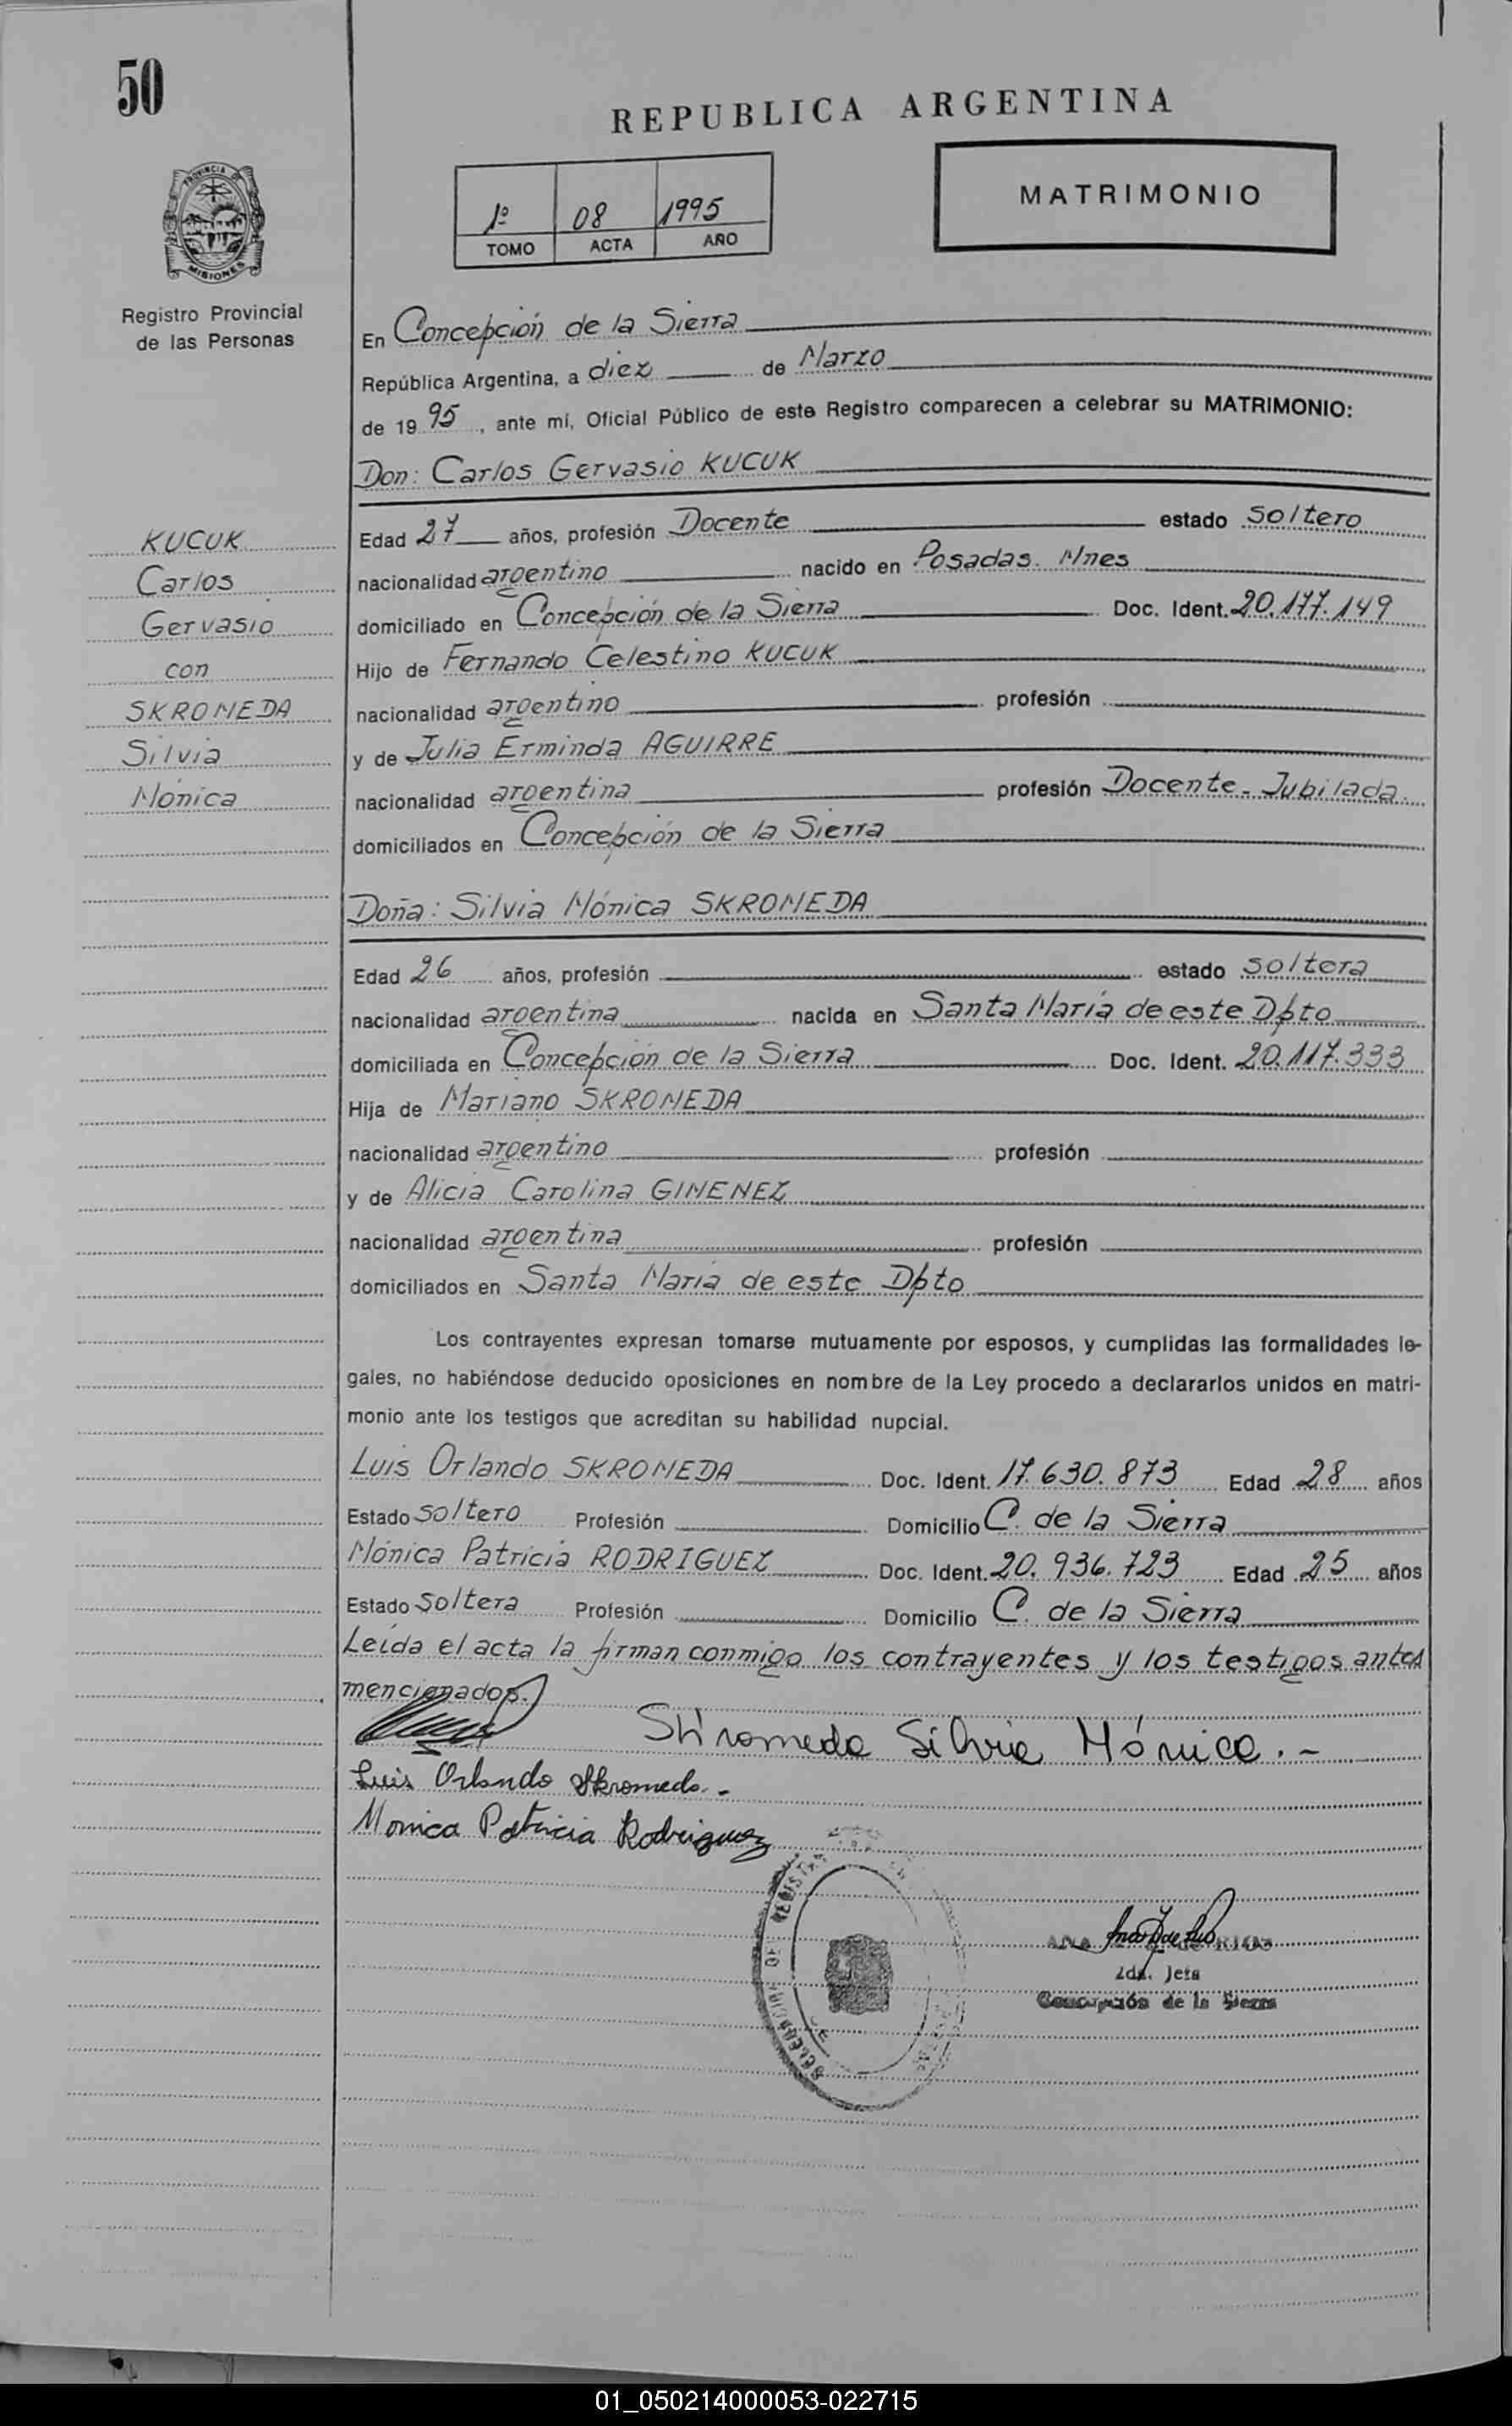 50
REPUBLICA ARGENTINA
PROVINCIA DE
MISIONES
Registro Provincial
de las Personas
1º 08 1995
TOMO ACTA AÑO
MATRIMONIO
En Concepción de la Sierra
República Argentina, a diez de Marzo
de 1995, ante mí, Oficial Público de este Registro comparecen a celebrar su MATRIMONIO:
Don: Carlos Gervasio KUCUK
KUCUK
Carlos
Gervasio
con
SKROMEDA
Silvia
Mónica
Edad 27 años, profesión Docente estado soltero
nacionalidad argentino nacido en Posadas. Mnes
domiciliado en Concepción de la Sierra Doc. Ident. 20.177.149
Hijo de Fernando Celestino KUCUK
nacionalidad argentino profesión
y de Julia Erminda AGUIRRE
nacionalidad argentina profesión Docente-Jubilada.
domiciliados en Concepción de la Sierra
Doña: Silvia Mónica SKROMEDA
Edad 26 años, profesión estado soltera
nacionalidad argentina nacida en Santa María de este Dpto
domiciliada en Concepción de la Sierra Doc. Ident. 20.117.333
Hija de Mariano SKROMEDA
nacionalidad argentino profesión
y de Alicia Carolina GIMENEZ
nacionalidad argentina profesión
domiciliados en Santa María de este Dpto
Los contrayentes expresan tomarse mutuamente por esposos, y cumplidas las formalidades le-
gales, no habiéndose deducido oposiciones en nombre de la Ley procedo a declararlos unidos en matri-
monio ante los testigos que acreditan su habilidad nupcial.
Luis Orlando SKROMEDA Doc. Ident. 17.630.873 Edad 28 años
Estado soltero Profesión Domicilio C. de la Sierra
Mónica Patricia RODRIGUEZ Doc. Ident. 20.936.723 Edad 25 años
Estado soltera Profesión Domicilio C. de la Sierra
Leída el acta la firman conmigo los contrayentes y los testigos antes
mencionados.
Skromeda Silvia Mónica.-
Luis Orlando Skromeda.-
Monica Patricia Rodriguez
ANA RIOS
2da. Jefa
Concepción de la Sierra
01_050214000053-022715